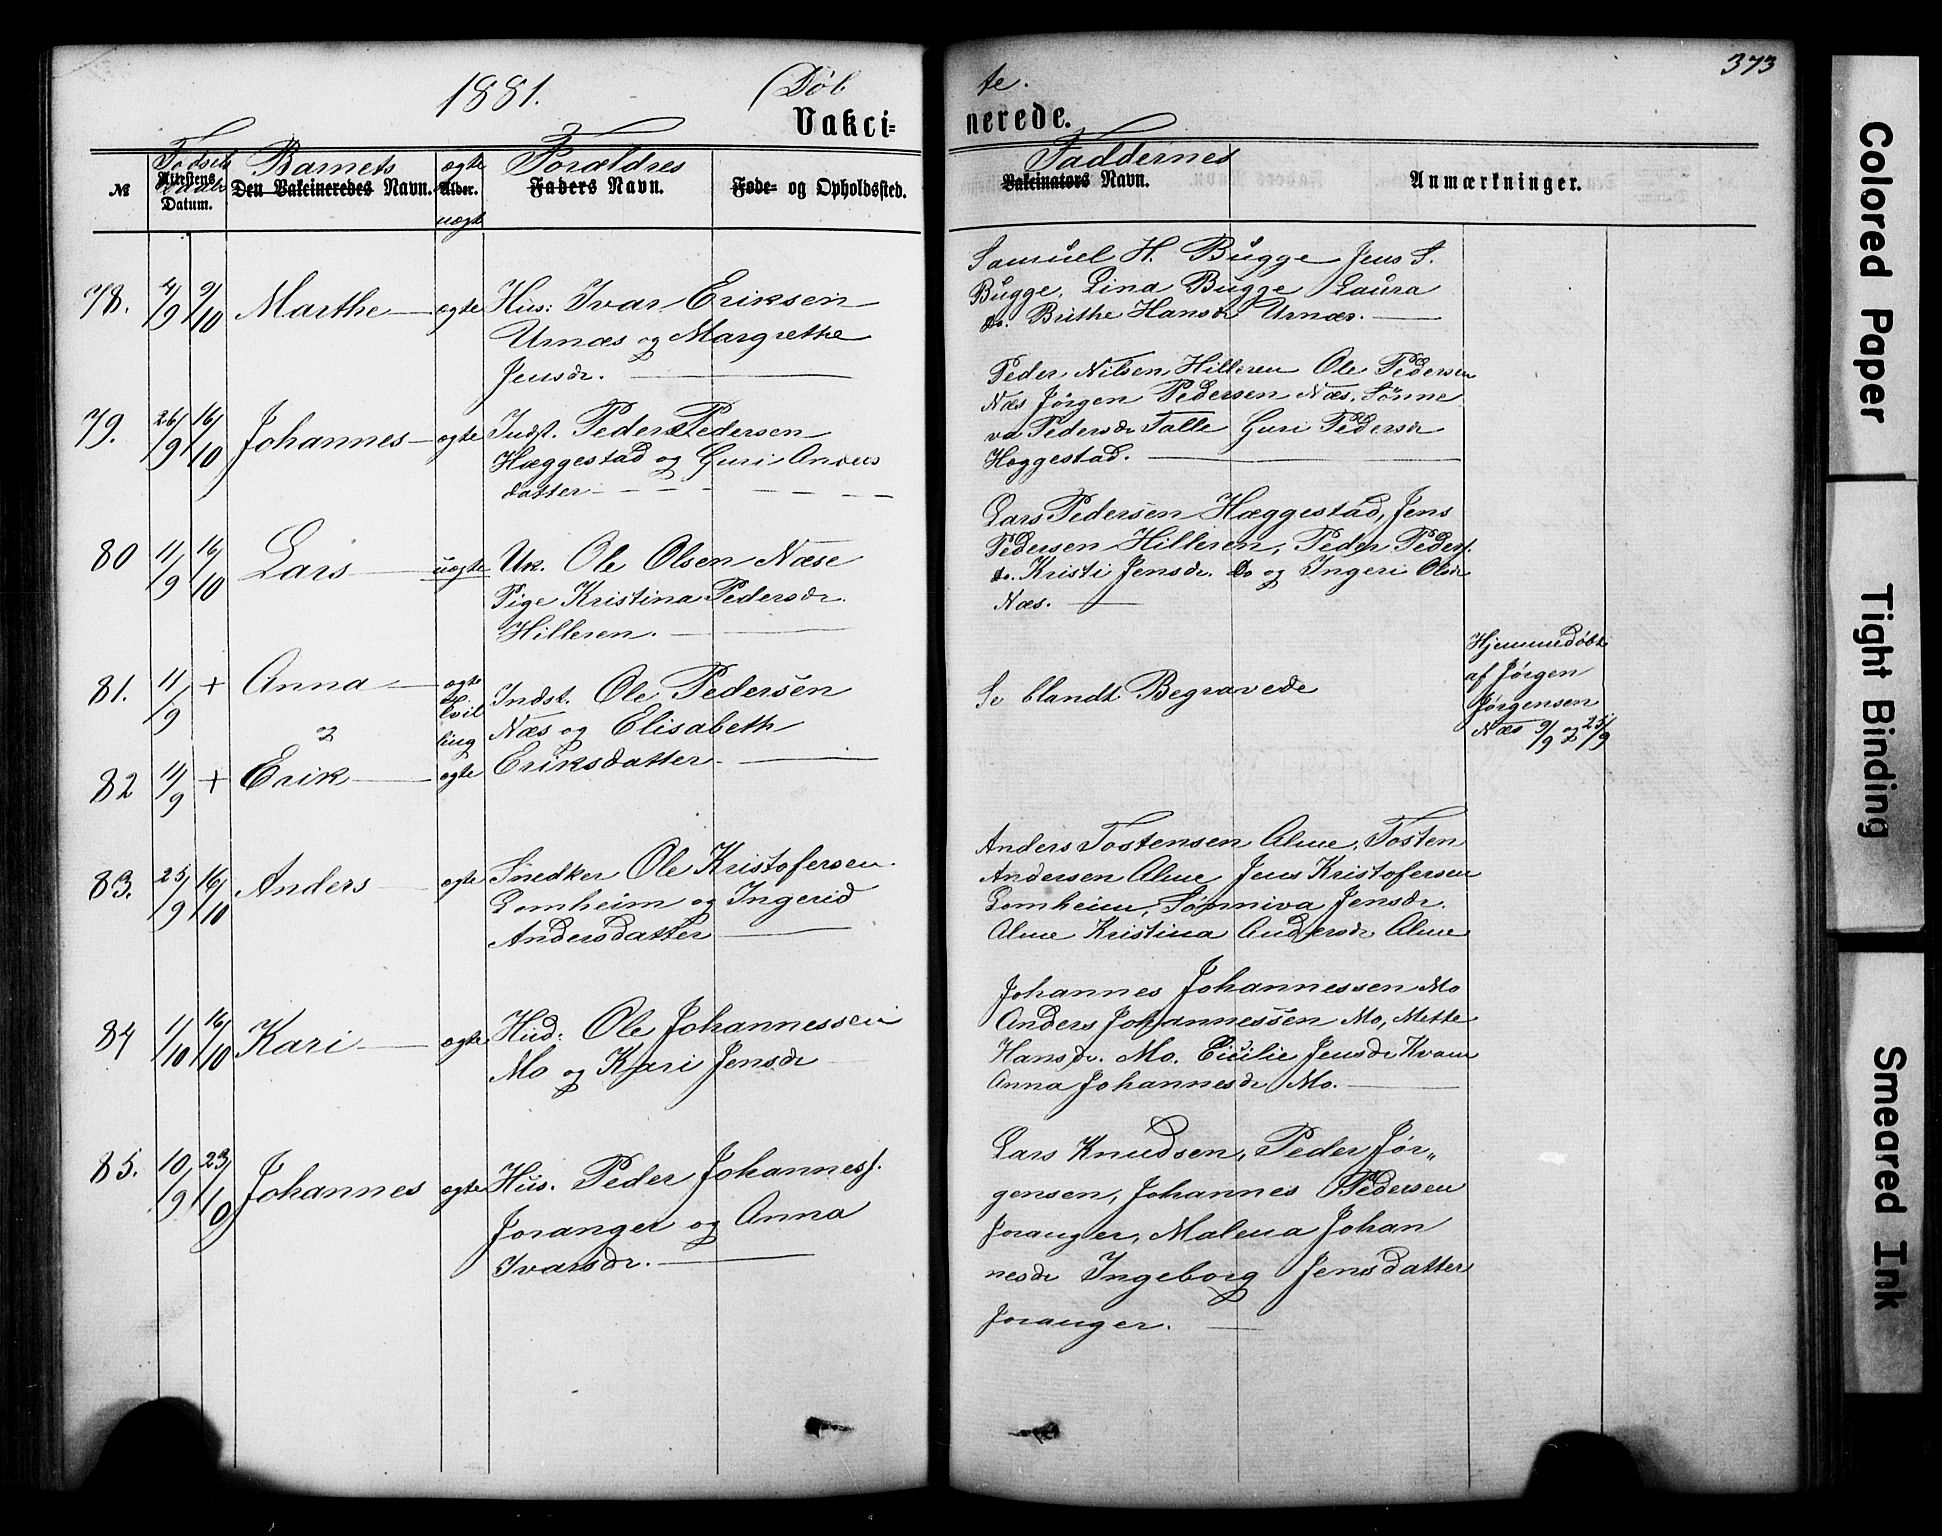 1881. (Døb
Vakci=
№ Fødsels Attestens Datum. Daabs Barnets Den Vakcineredes Navn. ægte Alder. uægte Forældres Faders Navn. Føde- og Opholdssted.
78. 4/9 9/10 Marthe ægte Hus: Ivar Eriksen
Urnæs og Margrethe
Jensdr.
79. 26/9 16/10 Johannes ægte Indst. Peder Pedersen
Hæggestad og Guri Anders
datter
80 11/9 16/10 Lars uægte Uk. Ole Olsen Næse
Pige Kristina Pedersdr.
Hilleren.
81. 11/9 + Anna ægte Indst. Ole Pedersen
2 tvilling Næs og Elisabeth
82 11/9 + Erik ægte Eriksdatter
83. 25/9 16/10 Anders ægte Snedker Ole Kristofersen
Lomheim og Ingerid
Andersdatter
84 1/10 16/10 Kari ægte Hud: Ole Johannessen
Mo og Kari Jensdr
85. 10/9 23/10 Johannes ægte Hus. Peder Johannesf.
Joranger og Anna
Ivarsdr.
373
te.
nerede.
Faddernes
Vakcinators Navn. Anmærkninger.
Samuel H. Bugge Jens S.
Bugge, Lina Bugge Laura
do. Brithe Hansdr Urnæs.
Peder Nilsen Hilleren Ole Pedersen
Næs Jørgen Pedersen Næs, Sønne
va Pedersdr Talle Guri Pedersdr
Hæggestad.
Lars Pedersen Hæggestad, Jens
Pedersen Hilleren, Peder Peders.
do. Kristi Jensdr. do og Ingeri Olsdr
Næs.
Se blandt Begravede
Hjemmedøbt
af Jørgen
Jørgensen
Næs 9/9 og 25/9
Anders Tostensen Alme, Tosten
Andersen Alme Jens Kristofersen
Lomheim, Sønniva Jensdr.
Alme Kristina Andersdr Alme
Johannes Johannessen Mo
Anders Johannessen Mo, Mette
Hansdr. Mo. Cicilie Jensdr Kvam
Anna Johannesdr Mo.
Lars Knudsen, Peder Jør„
gensen, Johannes Pedersen
Joranger, Malena Johan
nesdr Ingeborg Jensdatter
Joranger.
Colored Paper
Tight Binding
Smeared Ink